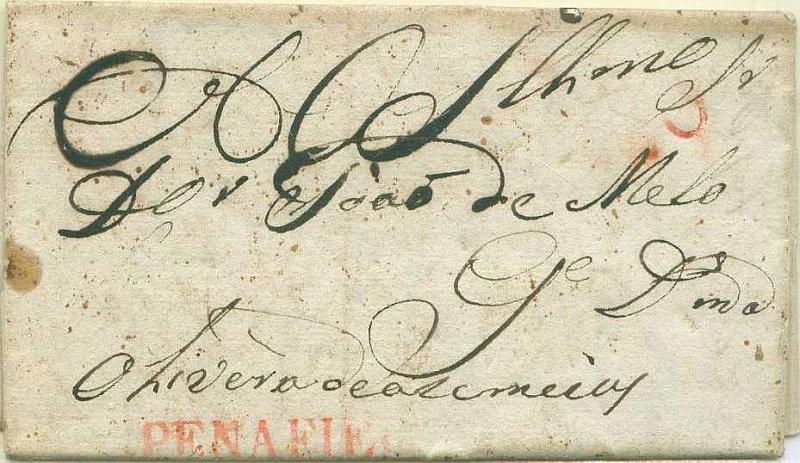 Ao Illmo Sr
Dor João de Melo
Ge Dmda
Oliveira de azemeis
PENAFIE